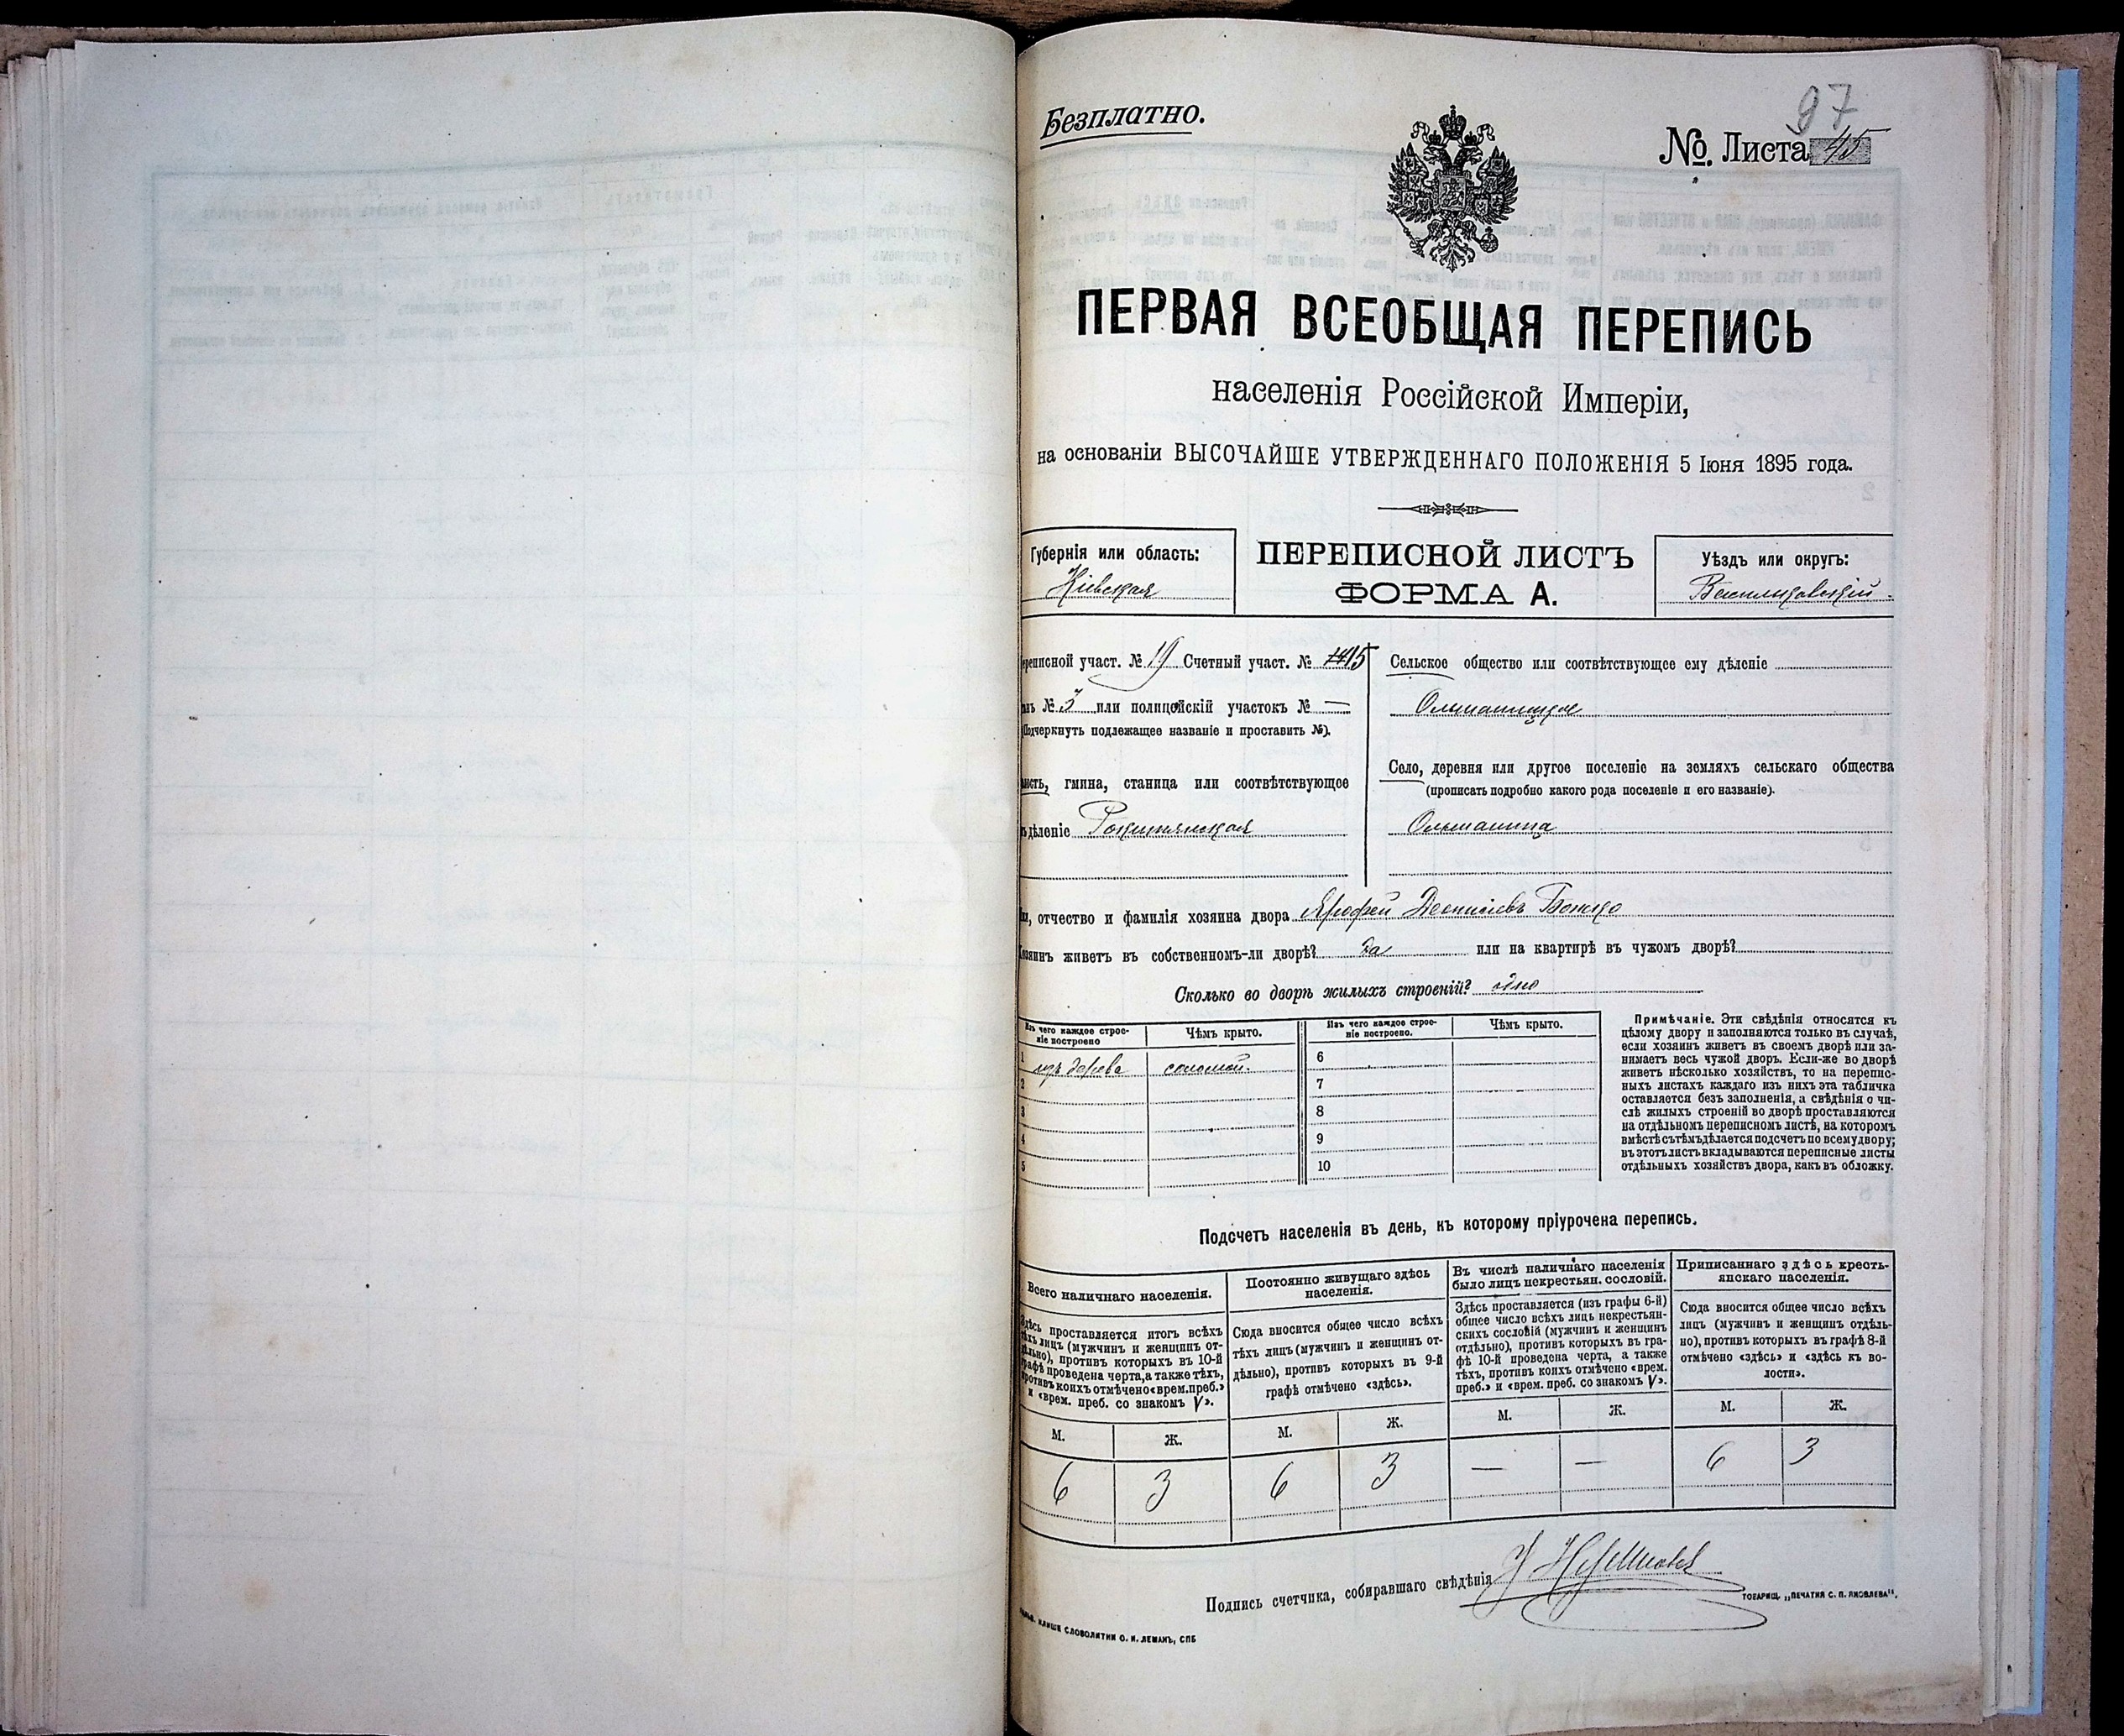 97
Безплатно.
№. Листа 45
ПЕРВАЯ ВСЕОБЩАЯ ПЕРЕПИСЬ
населенія Россійской Имперіи,
на основаніи ВЫСОЧАЙШЕ УТВЕРЖДЕННАГО ПОЛОЖЕНІЯ 5 Іюня 1895 года.
Губернія или область:
Кіевская
ПЕРЕПИСНОЙ ЛИСТЪ
ФОРМА А.
Уѣздъ или округъ:
Васильковскій
ереписной участ. № 19 Счетный участ. № 15
нъ № 3 или полицейскій участокъ № —
(Подчеркнуть подлежащее названіе и проставить №).
лость, гмина, станица или соотвѣтствующее
ъ дѣленіе Рокитянская
Сельское общество или соотвѣтствующее ему дѣленіе
Ольшаницкое
Село, деревня или другое поселеніе на земляхъ сельскаго общества
(прописать подробно какого рода поселеніе и его названіе).
Ольшаница
мя, отчество и фамилія хозяина двора Ярофей Деонисіевъ
Хозяинъ живетъ въ собственномъ-ли дворѣ? да или на квартирѣ въ чужомъ дворѣ?
Сколько во дворѣ жилыхъ строеній? одно
Изъ чего каждое строе-
ніе построено
Чѣмъ крыто.
Изъ чего каждое строе-
ніе построено.
Чѣмъ крыто.
1 изъ дерева соломой. 6
2 7
3 8
4 9
5 10
Примѣчаніе. Эти свѣдѣнія относятся къ
цѣлому двору и заполняются только въ случаѣ,
если хозяинъ живетъ въ своемъ дворѣ или за-
нимаетъ весь чужой дворъ. Если-же во дворѣ
живетъ нѣсколько хозяйствъ, то на перепис-
ныхъ листахъ каждаго изъ нихъ эта табличка
оставляется безъ заполненія, а свѣдѣнія о чи-
слѣ жилыхъ строеній во дворѣ проставляются
на отдѣльномъ переписномъ листѣ, на которомъ
вмѣстѣ съ тѣмъ дѣлается подсчетъ по всему двору;
въ этотъ листъ вкладываются переписные листы
отдѣльныхъ хозяйствъ двора, какъ въ обложку.
Подсчетъ населенія въ день, къ которому пріурочена перепись.
Всего наличнаго населенія.
Здѣсь проставляется итогъ всѣхъ
тѣхъ лицъ (мужчинъ и женщинъ от-
дѣльно), противъ которыхъ въ 10-й
графѣ проведена черта, а также тѣхъ,
противъ коихъ отмѣчено «врем. преб.»
и «врем. преб. со знакомъ V».
М. Ж.
6 3
Постоянно живущаго здѣсь
населенія.
Сюда вносится общее число всѣхъ
тѣхъ лицъ (мужчинъ и женщинъ от-
дѣльно), противъ которыхъ въ 9-й
графѣ отмѣчено «здѣсь».
М. Ж.
6 3
Въ числѣ наличнаго населенія
было лицъ некрестьян. сословій.
Здѣсь проставляется (изъ графы 6-й)
общее число всѣхъ лицъ некрестьян-
скихъ сословій (мужчинъ и женщинъ
отдѣльно), противъ которыхъ въ гра-
фѣ 10-й проведена черта, а также
тѣхъ, противъ коихъ отмѣчено «врем.
преб.» и «врем. преб. со знакомъ V».
М. Ж.
— —
Приписаннаго здѣсь кресть-
янскаго населенія.
Сюда вносится общее число всѣхъ
лицъ (мужчинъ и женщинъ отдѣль-
но), противъ которыхъ въ графѣ 8-й
отмѣчено «здѣсь» и «здѣсь къ во-
лости».
М. Ж.
6 3
Подпись счетчика, собиравшаго свѣдѣнія
КЛИШЕ СЛОВОЛИТНИ О. И. ЛЕМАНЪ, СПБ
ТОВАРИЩ. „ПЕЧАТНЯ С. П. ЯКОВЛЕВА“.